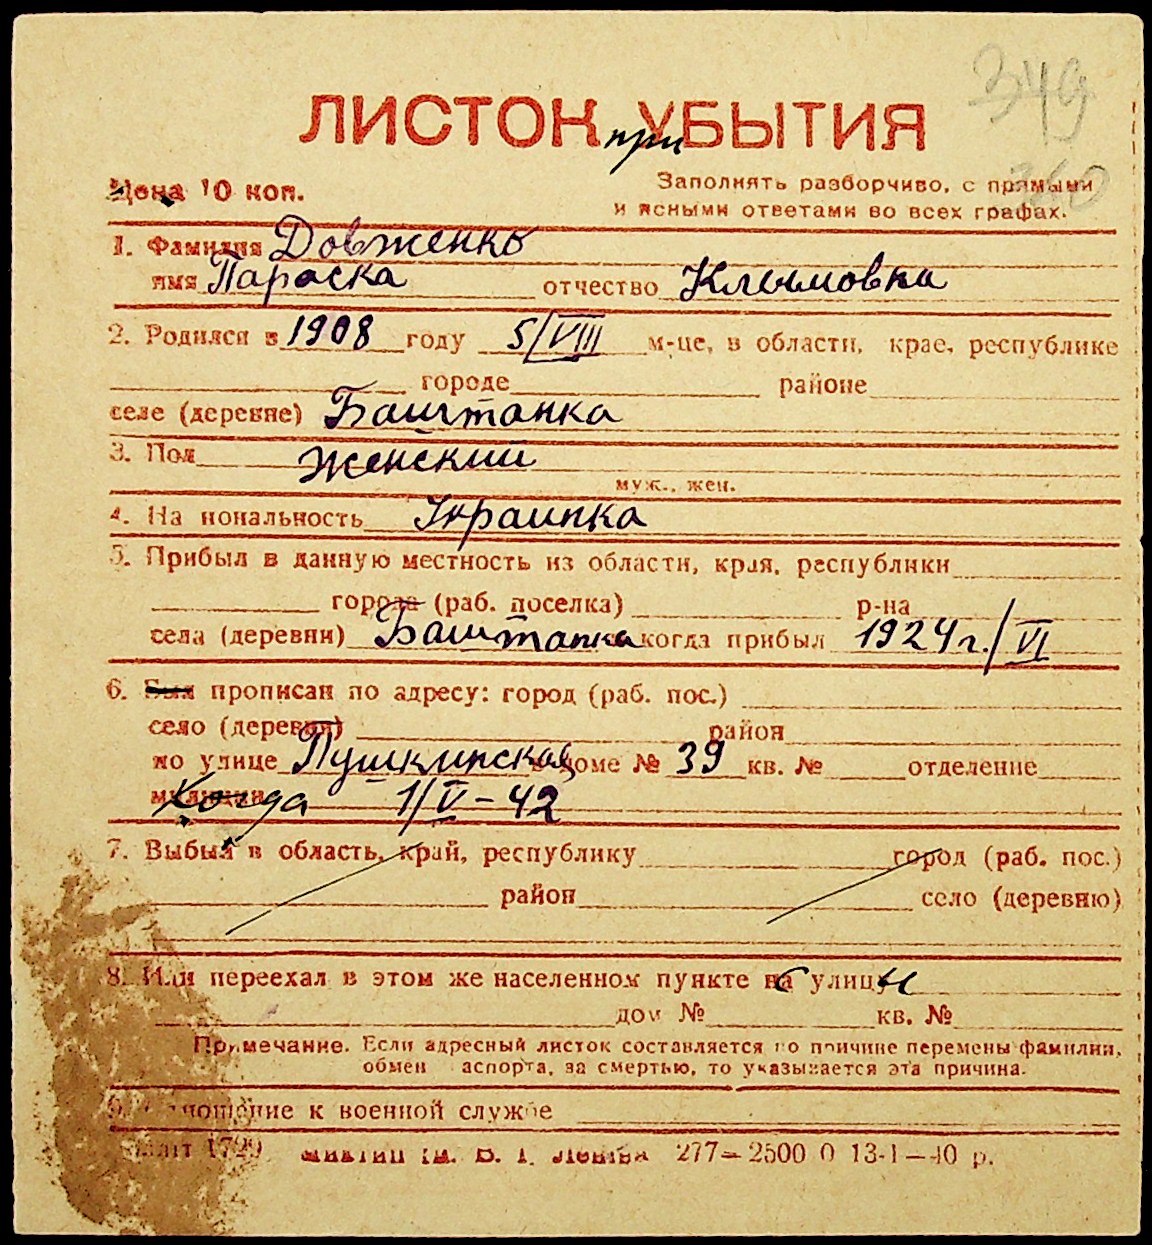 349
ЛИСТОК при УБЫТИЯ
360
Цена 10 коп.
Заполнять разборчиво, с прямыми
и ясными ответами во всех графах.
1. Фамилия Довженко
имя Параска отчество Клымовна
2. Родился в 1908 году 5/VIII м-це, в области, крае, республике
городе районе
селе (деревне) Баштанка
3. Пол Женский
муж., жен.
4. На иональность Украинка
5. Прибыл в данную местность из области, края, республики
города (раб. поселка) р-на
села (деревни) Баштанка когда прибыл 1924 г./VI
6. Был прописан по адресу: город (раб. пос.)
село (деревня) район
по улице Пушкинская в доме № 39 кв. № отделение
милиции Когда 1/V-42
7. Выбыл в область, край, республику город (раб. пос.)
район село (деревню)
8. Или переехал в этом же населенном пункте с улицы
дом № кв. №
Примечание. Если адресный листок составляется по причине перемены фамилии,
обмен аспорта, за смертью, то указывается эта причина.
9. Отношение к военной службе
1729 277—2500 0 13-1—40 р.